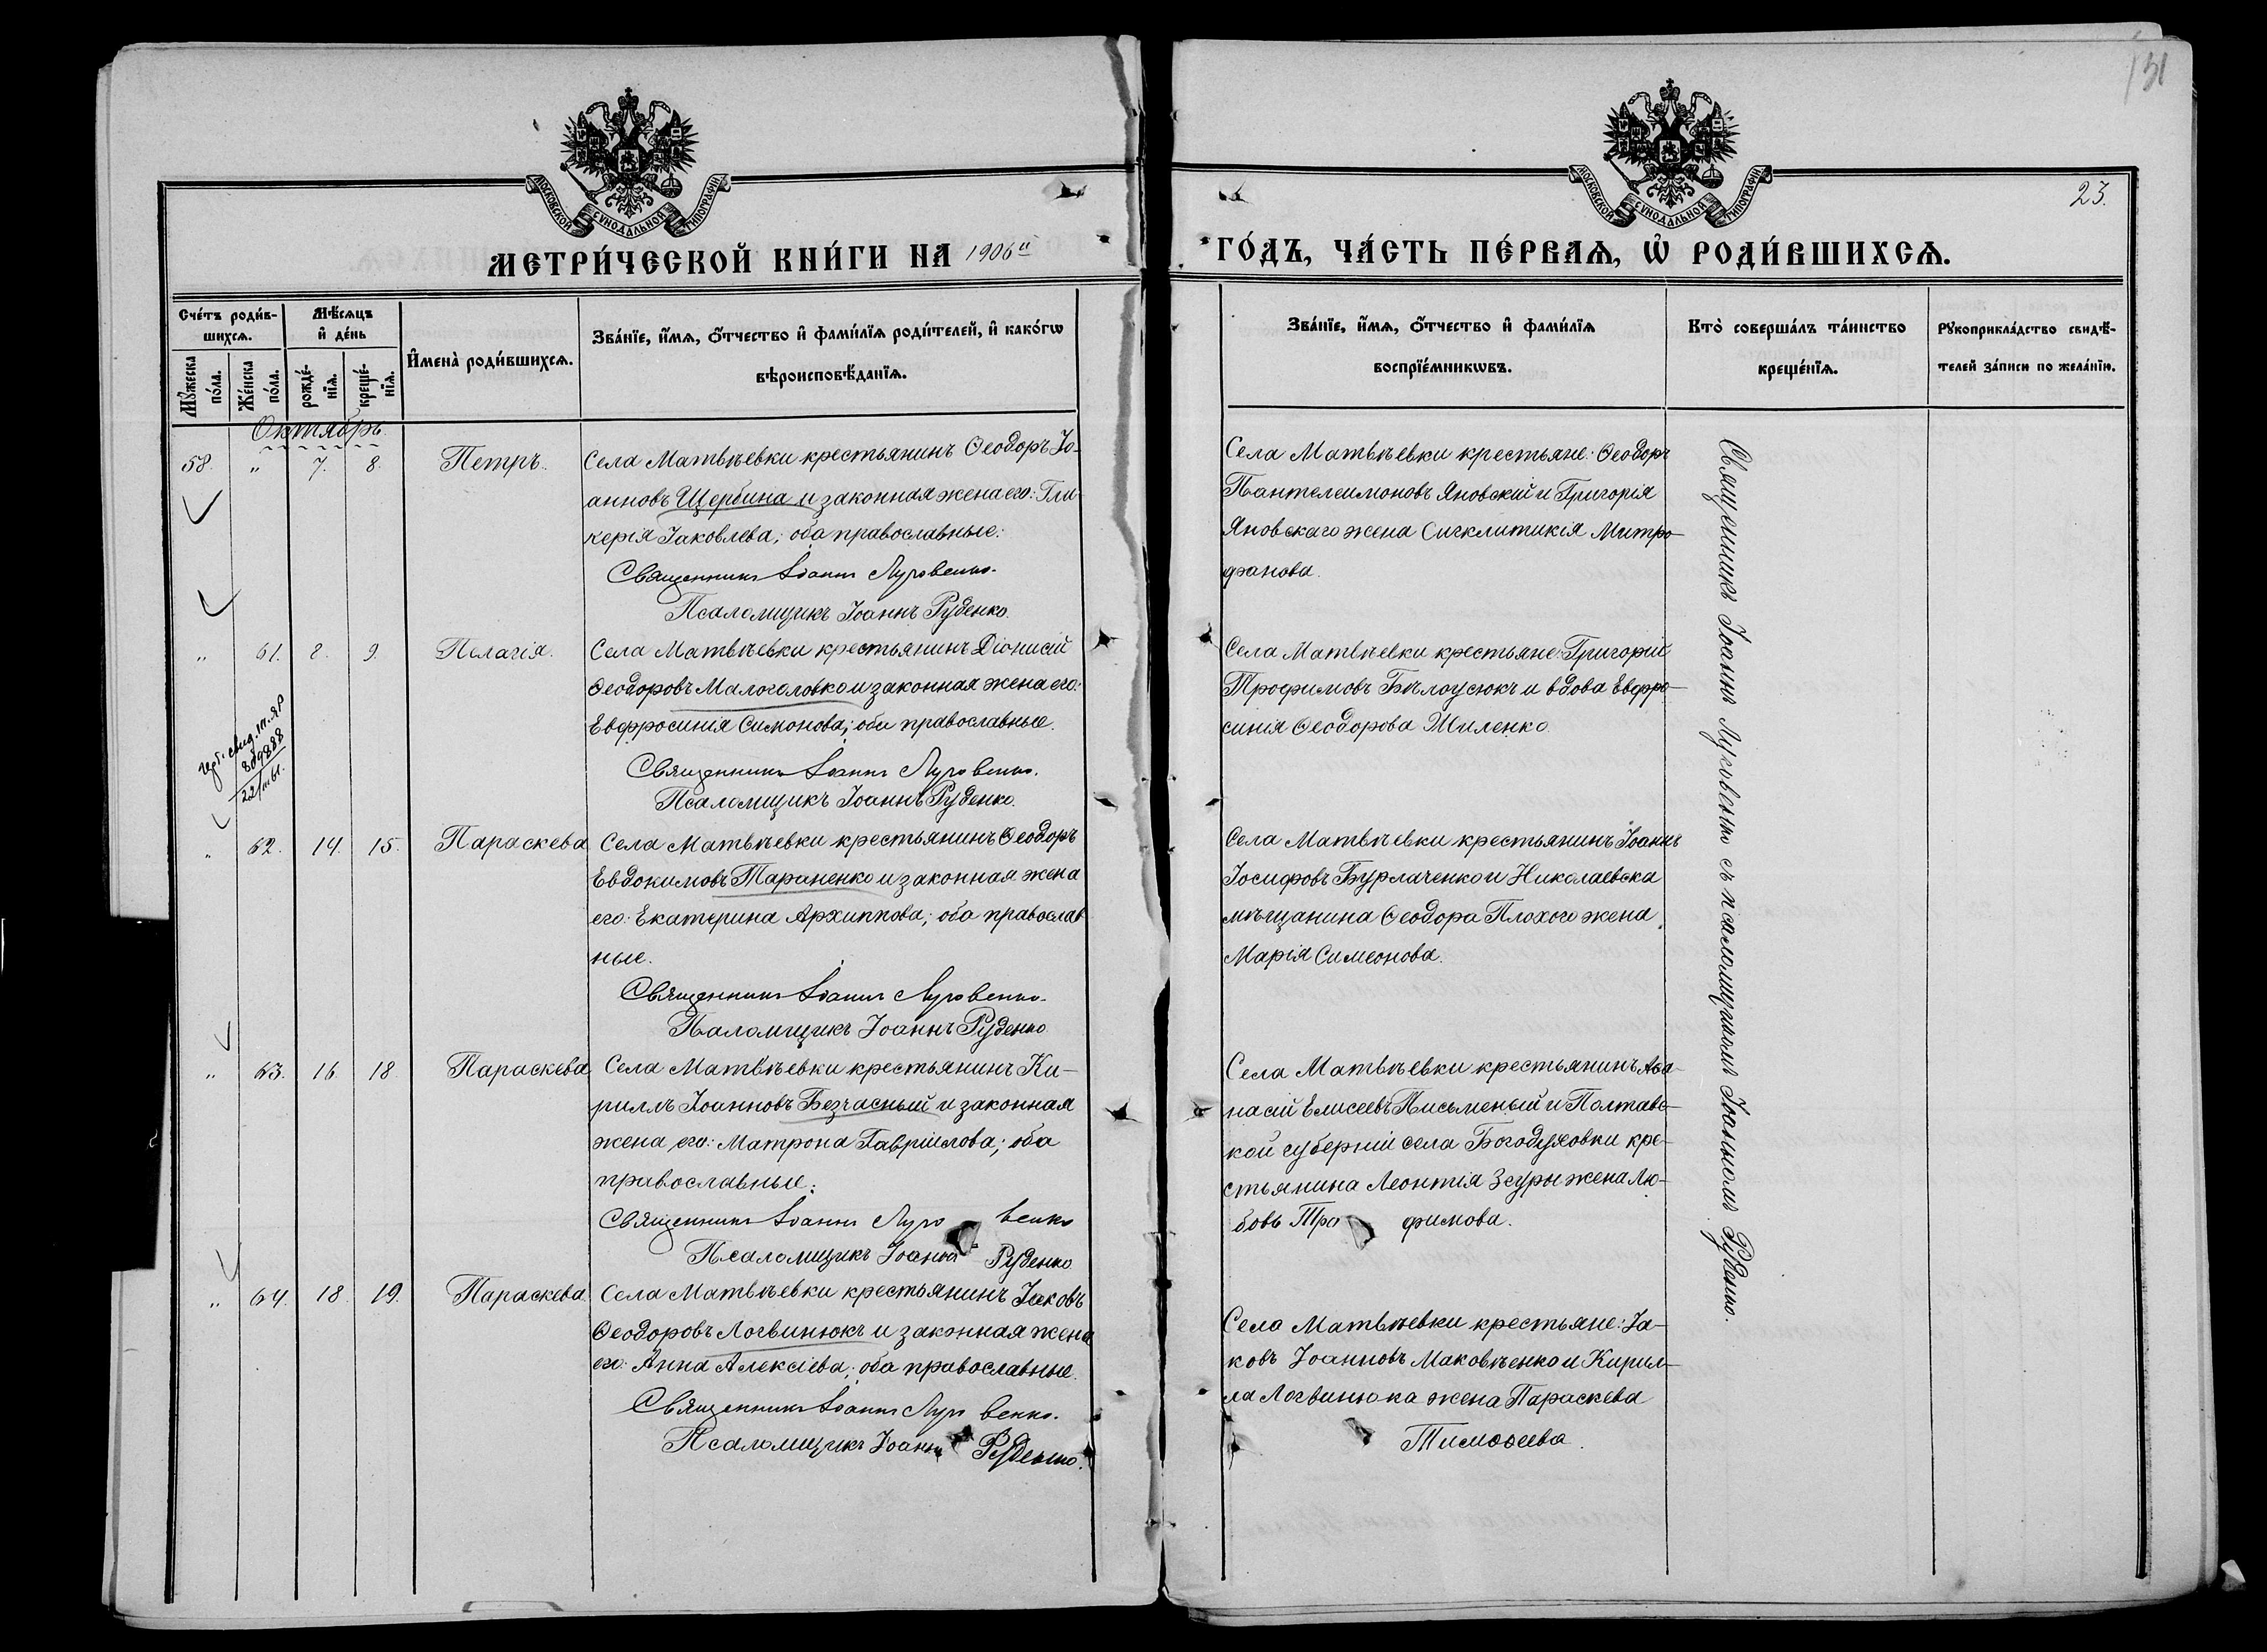 131
23.
МОСКОВСКОЙ СѴНОДАЛЬНОЙ ТИПОГРАФІИ
МОСКОВСКОЙ СѴНОДАЛЬНОЙ ТИПОГРАФІИ
МЕТРИ́ЧЕСКОЙ КНИ́ГИ НА 1906й
ГО́ДЪ, ЧА́СТЬ ПЕ́РВАѦ, Ѡ҆ РОДИ́ВШИХСѦ.
Сче́тъ роди́в-
шихсѧ.
Мѣ́сѧцъ
и҆ де́нь
И҆мена̀ роди́вшихсѧ.
Зва́нїе, и҆́мѧ, ѻ҆́тчество и҆ фами́лїѧ роди́телей, и҆ како́гѡ
вѣроисповѣ́данїѧ.
Мꙋ́жеска
по́ла.
Же́нска
по́ла.
рожде́-
нїѧ.
креще́-
нїѧ.
Зва́нїе, и҆́мѧ, ѻ҆́тчество и҆ фами́лїѧ
воспрїе́мникѡвъ.
Кто̀ соверша́лъ та́инство
креще́нїѧ.
Рꙋкоприкла́дство свидѣ́-
телей за́писи по жела́нїю.
Октябрь.
58. " 7. 8. Петръ.
Села Матвѣевки крестьянинъ Ѳеодоръ Іо-
анновъ Щербина и законная жена его: Гли-
керія Іаковлева; оба православные.
Священникъ Іоаннъ Луговенко.
Псаломщикъ Іоаннъ Руденко.
Села Матвѣевки крестьяне: Ѳеодоръ
Пантелеимоновъ Яновскій и Григорія
Яновскаго жена Сигклитикія Митро-
фанова.
" 61. 8. 9. Пелагія.
Села Матвѣевки крестьянинъ Діонисій
Ѳеодоровъ Малоголовко и законная жена его:
Евфросинія Симонова; оба православные.
Священникъ Іоаннъ Луговенко.
Псаломщикъ Іоаннъ Руденко.
Села Матвѣевки крестьяне: Григорій
Трофимовъ Бѣлоусюкъ и вдова Евфро-
синія Ѳеодорова Шиленко
809888
" 62. 14. 15. Параскева
Села Матвѣевки крестьянинъ Ѳеодоръ
Евдокимовъ Тараненко и законная жена
его: Екатерина Архиппова; оба православ
ные.
Священникъ Іоаннъ Луговенко.
Псаломщикъ Іоаннъ Руденко
Села Матвѣевки крестьянинъ Іоаннъ
Іосифовъ Бурлаченко и Николаевска
мѣщанина Ѳеодора Плохого жена
Марія Симеонова.
" 63. 16 18 Параскева
Села Матвѣевки крестьянинъ Ки-
риллъ Іоанновъ Безчасный и законная
жена его: Матрона Гавріилова; оба
православные.
Священникъ Іоаннъ Луговенко
Псаломщикъ Іоаннъ Руденко
Села Матвѣевки крестьянинъ Аѳа-
насій Елисеевъ Письменый и Полтавс-
кой губерніи села Богодуховки кре-
стьянина Леонтія Зсуры жена Лю-
бовь Трофимова.
" 64. 18. 19. Параскева.
Села Матвѣевки крестьянинъ Іаковъ
Ѳеодоровъ Логвинюкъ и законная жена
его: Анна Алексіева; оба православные.
Священникъ Іоаннъ Луговенко.
Псаломщикъ Іоаннъ Руденко.
Села Матвѣевки крестьяне: Іа-
ковъ Іоанновъ Маковѣенко и Кирил-
ла Логвинюка жена Параскева
Тимоѳеева.
Священникъ Іоаннъ Луговенко съ псаломщикомъ Іоанномъ Руденко.